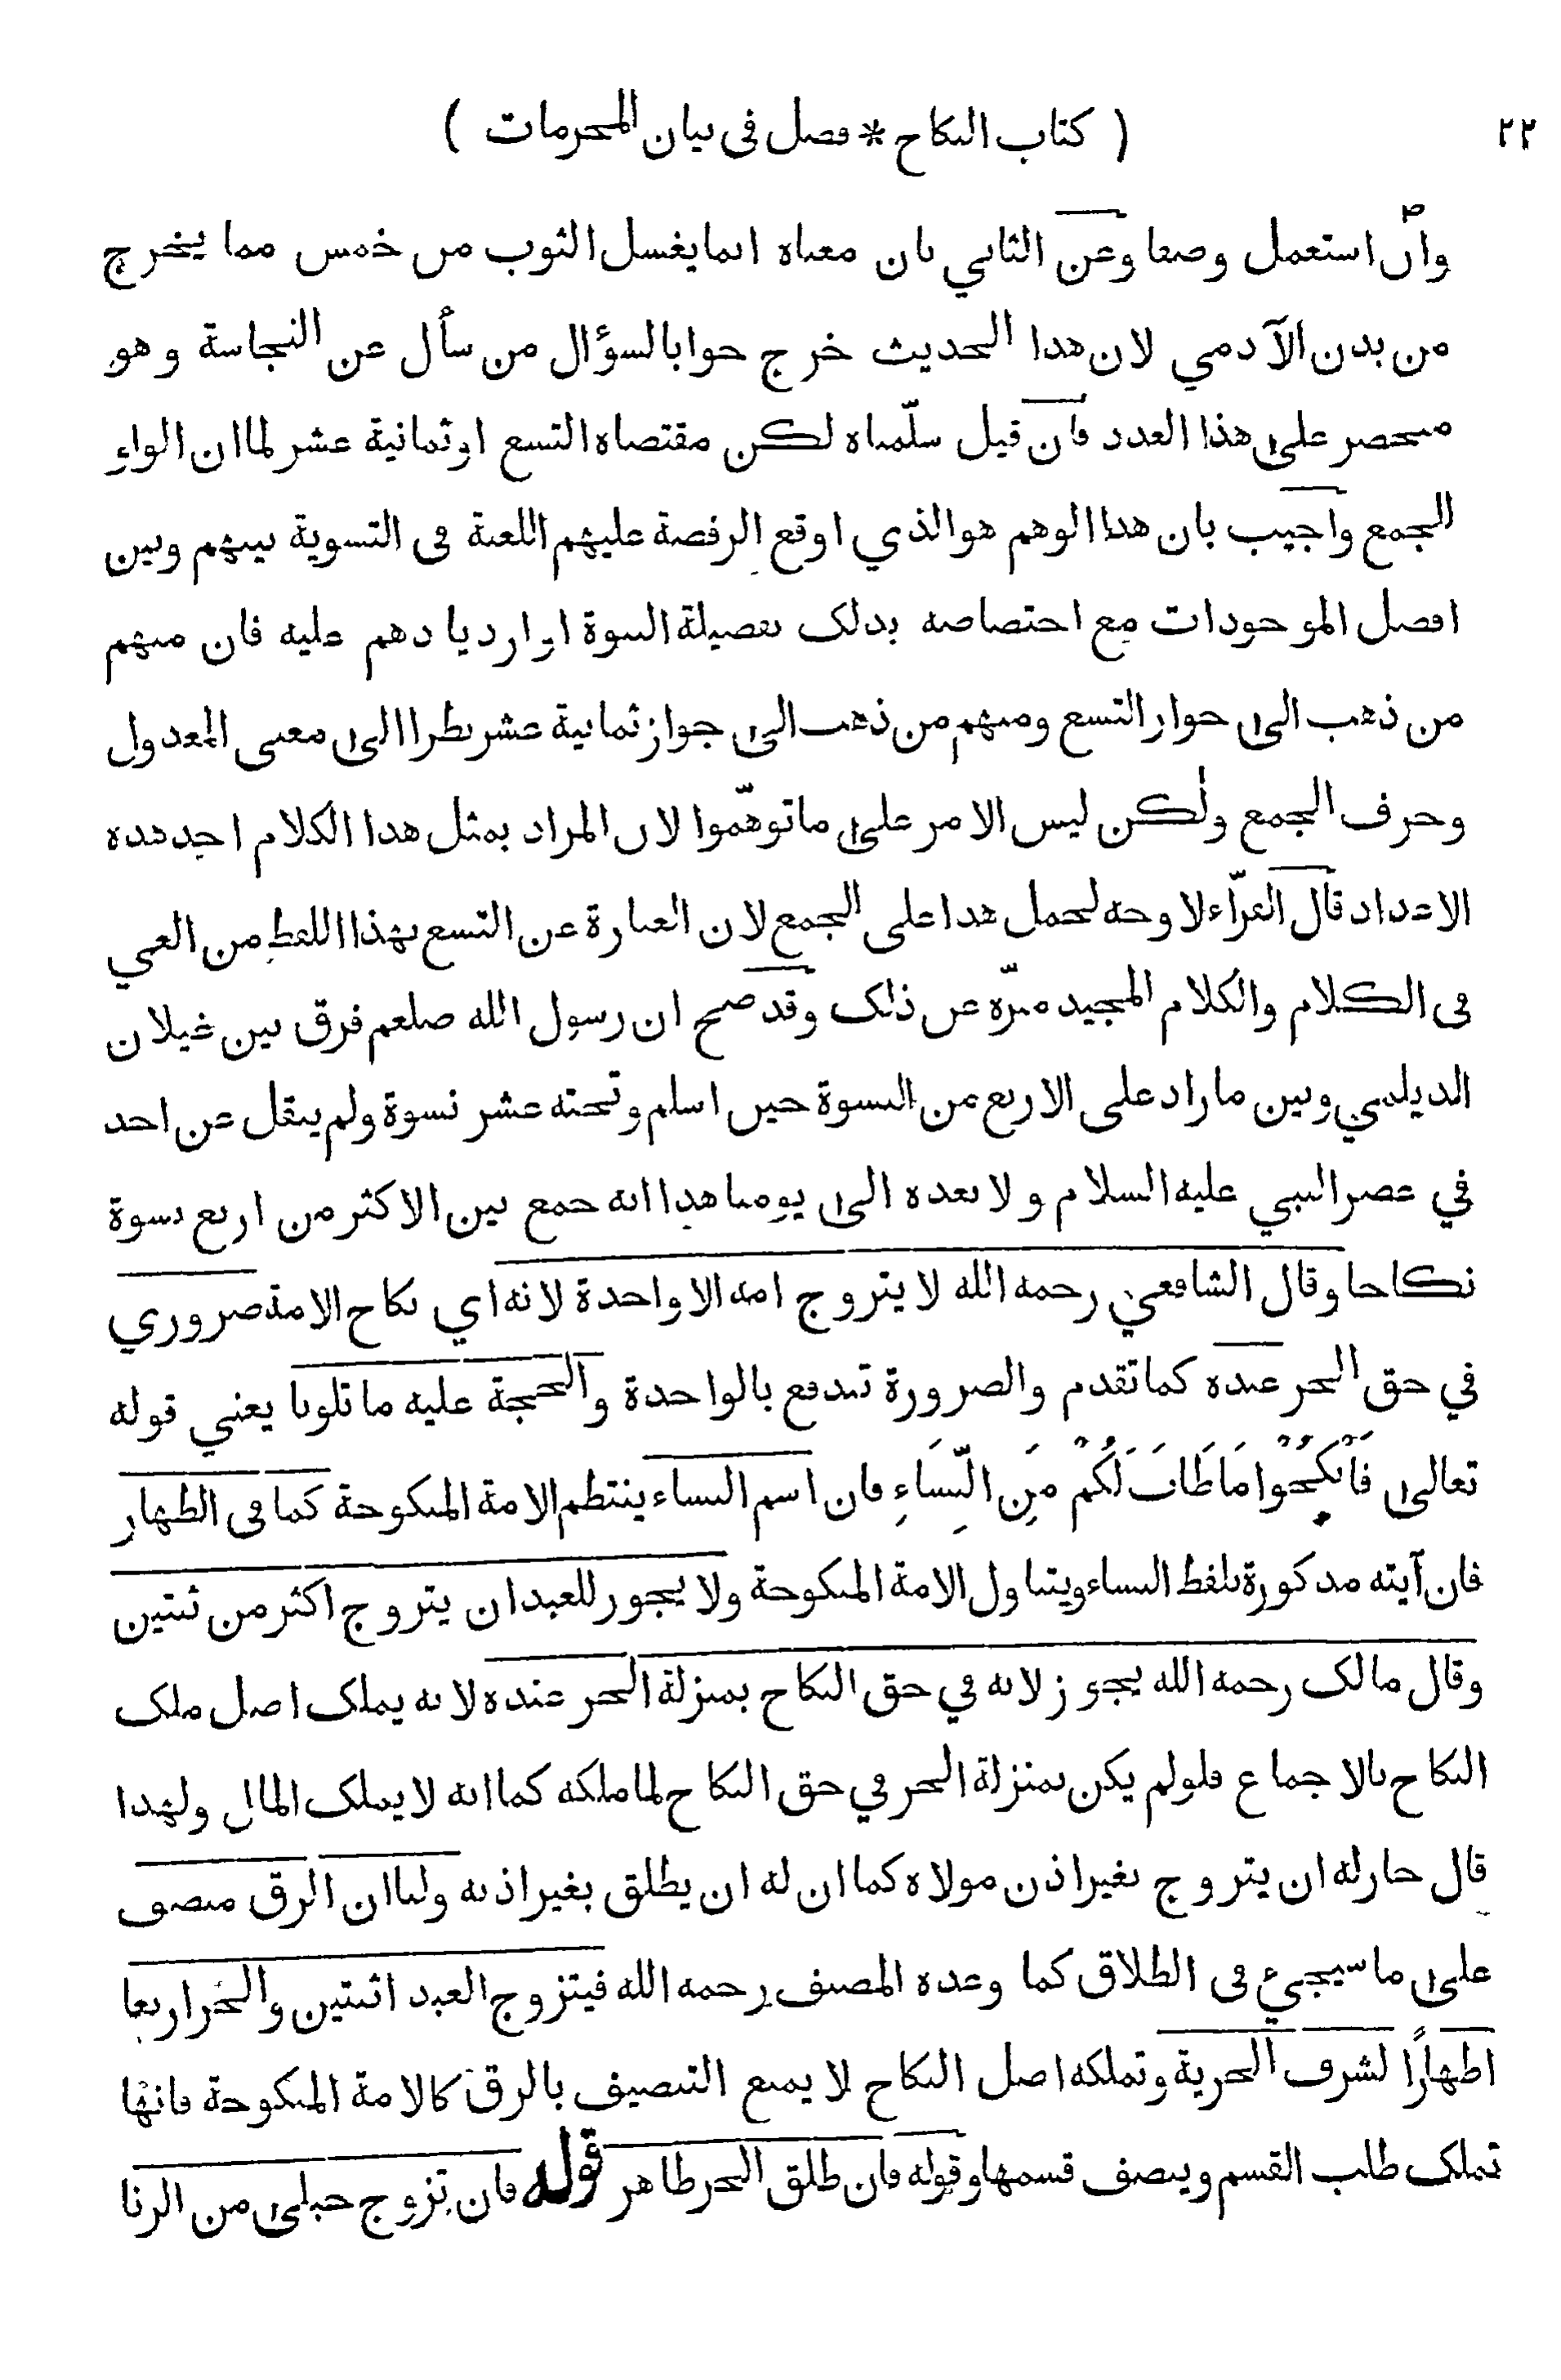 ٢٢ ( كتاب النكاح * فصل فى بيان المحرمات )
وان استعمل وصفا وعن الثاني بان معناه انما يغسل الثوب من خمس مما يخرج
من بدن الآدمي لان هذا الحديث خرج جوابا لسؤال من سأل عن النجاسة وهو
منحصر على هذا العدد فان قيل سلّمناه لكن مقتضاه التسع او ثمانية عشر لما ان الواو
للجمع واجيب بان هذا الوهم هو الذي اوقع الرفضة عليهم اللعنة فى التسوية بينهم وبين
افضل الموجودات مع اختصاصه بذلك لفضيلة النبوة او ازديادهم عليه فان منهم
من ذهب الى جواز التسع ومنهم من ذهب الى جواز ثمانية عشر نظرا الى معنى المعدول
وحرف الجمع ولٰكن ليس الامر على ما توهّموا لان المراد بمثل هذا الكلام احد هذه
الاعداد قال الفرّاء لا وجه لحمل هذا على الجمع لان العبارة عن التسع بهذا اللفظ من العي
فى الكلام والكلام المجيد منزّه عن ذلك وقد صح ان رسول الله صلعم فرق بين غيلان
الديلمي وبين ما زاد على الاربع من النسوة حين اسلم وتحته عشر نسوة ولم ينقل عن احد
في عصر النبي عليه السلام ولا بعده الى يومنا هذا انه جمع بين الاكثر من اربع نسوة
نكاحا وقال الشافعي رحمه الله لا يتزوج امة الا واحدة لانه اي نكاح الامة ضروري
في حق الحر عنده كما تقدم والضرورة تندفع بالواحدة والحجة عليه ما تلونا يعني قوله
تعالى فَانْكِحُوْا مَا طَابَ لَكُمْ مِنَ النِّسَاءِ فان اسم النساء ينتظم الامة المنكوحة كما فى الظهار
فان آيته مذكورة بلفظ النساء ويتناول الامة المنكوحة ولا يجوز للعبد ان يتزوج اكثر من ثنتين
وقال مالك رحمه الله يجوز لانه في حق النكاح بمنزلة الحر عنده لانه يملك اصل ملك
النكاح بالاجماع فلو لم يكن بمنزلة الحر في حق النكاح لما ملكه كما انه لا يملك المال ولهذا
قال جاز له ان يتزوج بغير اذن مولاه كما ان له ان يطلق بغير اذنه ولنا ان الرق منصف
على ما سيجيء فى الطلاق كما وعده المصنف رحمه الله فيتزوج العبد اثنتين والحُر اربعا
اظهارًا لشرف الحرية وتملكه اصل النكاح لا يمنع التنصيف بالرق كالامة المنكوحة فانها
تملك طلب القسم وينصف قسمها وقوله فان طلق الحر ظاهر قوله فان تزوج حبلى من الزنا